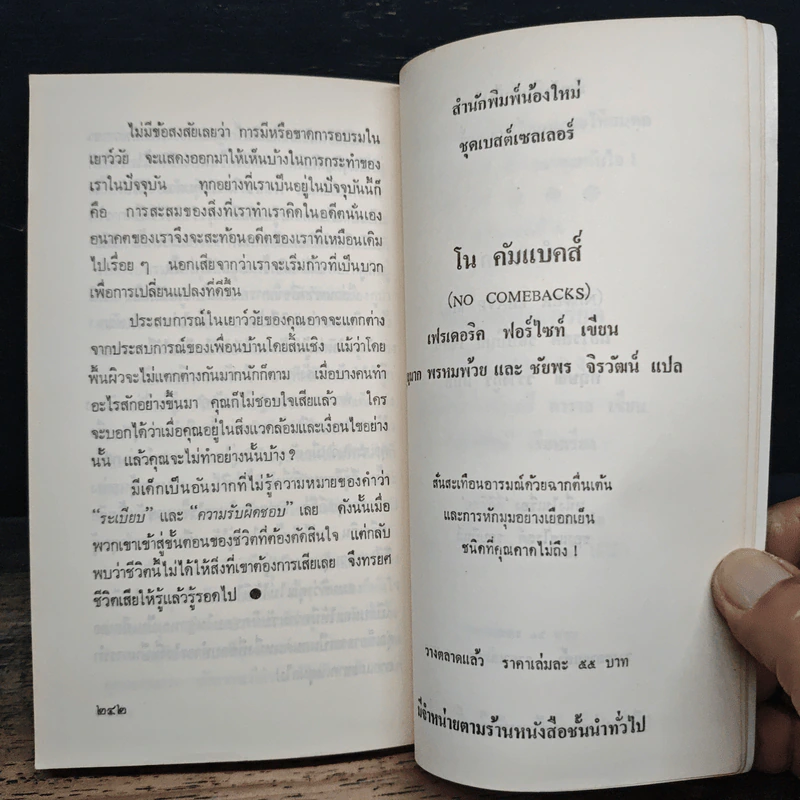 ไม่มีข้อสงสัยเลยว่า การมีหรือขาดการอบรมใน
เยาว์วัย จะแสดงออกมาให้เห็นบ้างในการกระทำของ
เราในปัจจุบัน ทุกอย่างที่เราเป็นอยู่ในปัจจุบันนี้ก็
คือ การสะสมของสิ่งที่เราทำเราคิดในอดีตนั่นเอง
อนาคตของเราจึงจะสะท้อนอดีตของเราที่เหมือนเดิม
ไปเรื่อย ๆ นอกเสียจากว่าเราจะเริ่มก้าวที่เป็นบวก
เพื่อการเปลี่ยนแปลงที่ดีขึ้น
ประสบการณ์ในเยาว์วัยของคุณอาจจะแตกต่าง
จากประสบการณ์ของเพื่อนบ้านโดยสิ้นเชิง แม้ว่าโดย
พื้นผิวจะไม่แตกต่างกันมากนักก็ตาม เมื่อบางคนทำ
อะไรสักอย่างขึ้นมา คุณก็ไม่ชอบใจเสียแล้ว ใคร
จะบอกได้ว่าเมื่อคุณอยู่ในสิ่งแวดล้อมและเงื่อนไขอย่าง
นั้น แล้วคุณจะไม่ทำอย่างนั้นบ้าง ?
มีเด็กเป็นอันมากที่ไม่รู้ความหมายของคำว่า
“ระเบียบ” และ “ความรับผิดชอบ” เลย ดังนั้นเมื่อ
พวกเขาเข้าสู่ขั้นตอนของชีวิตที่ต้องตัดสินใจ แต่กลับ
พบว่าชีวิตนี้ไม่ได้ให้สิ่งที่เขาต้องการเสียเลย จึงทรยศ
ชีวิตเสียให้รู้แล้วรู้รอดไป ●
๒๔๒
สำนักพิมพ์น้องใหม่
ชุดเบสต์เซลเลอร์
โน คัมแบคส์
(NO COMEBACKS)
เฟรเดอริค ฟอร์ไซท์ เขียน
พรหมพ้วย และ ชัยพร จิรวัฒน์ แปล
สั่นสะเทือนอารมณ์ด้วยฉากตื่นเต้น
และการหักมุมอย่างเยือกเย็น
ชนิดที่คุณคาดไม่ถึง !
วางตลาดแล้ว ราคาเล่มละ ๕๕ บาท
มีจำหน่ายตามร้านหนังสือชั้นนำทั่วไป